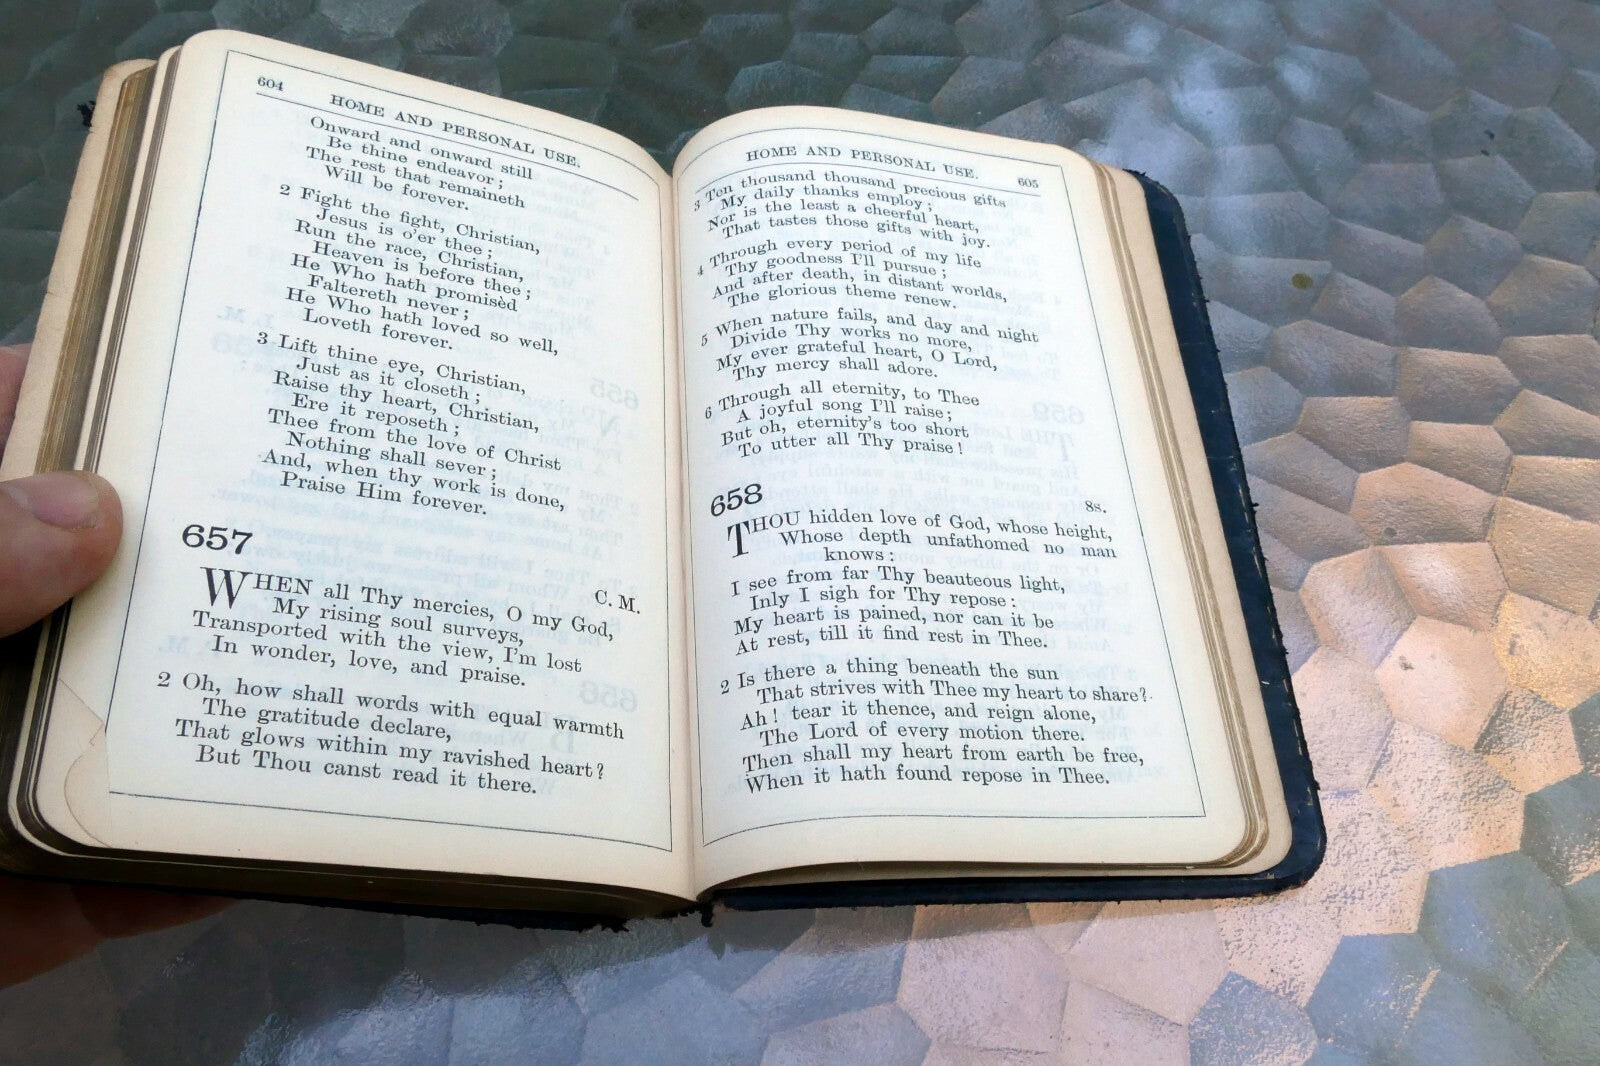 604
HOME AND PERSONAL USE.
Onward and onward still
Be thine endeavor;
The rest that remaineth
Will be forever.
2 Fight the fight, Christian,
Jesus is o'er thee;
Run the race, Christian,
Heaven is before thee;
He Who hath promisèd
Faltereth never;
He Who hath loved so well,
Loveth forever.
3 Lift thine eye, Christian,
Just as it closeth;
Raise thy heart, Christian,
Ere it reposeth;
Thee from the love of Christ
Nothing shall sever;
And, when thy work is done,
Praise Him forever.
657
C. M.
WHEN all Thy mercies, O my God,
My rising soul surveys,
Transported with the view, I'm lost
In wonder, love, and praise.
2 Oh, how shall words with equal warmth
The gratitude declare,
That glows within my ravished heart?
But Thou canst read it there.
HOME AND PERSONAL USE.
605
3 Ten thousand thousand precious gifts
My daily thanks employ;
Nor is the least a cheerful heart,
That tastes those gifts with joy.
4 Through every period of my life
Thy goodness I'll pursue;
And after death, in distant worlds,
The glorious theme renew.
5 When nature fails, and day and night
Divide Thy works no more,
My ever grateful heart, O Lord,
Thy mercy shall adore.
6 Through all eternity, to Thee
A joyful song I'll raise;
But oh, eternity's too short
To utter all Thy praise!
658
8s.
THOU hidden love of God, whose height,
Whose depth unfathomed no man
knows:
I see from far Thy beauteous light,
Inly I sigh for Thy repose:
My heart is pained, nor can it be
At rest, till it find rest in Thee.
2 Is there a thing beneath the sun
That strives with Thee my heart to share?
Ah! tear it thence, and reign alone,
The Lord of every motion there.
Then shall my heart from earth be free,
When it hath found repose in Thee.